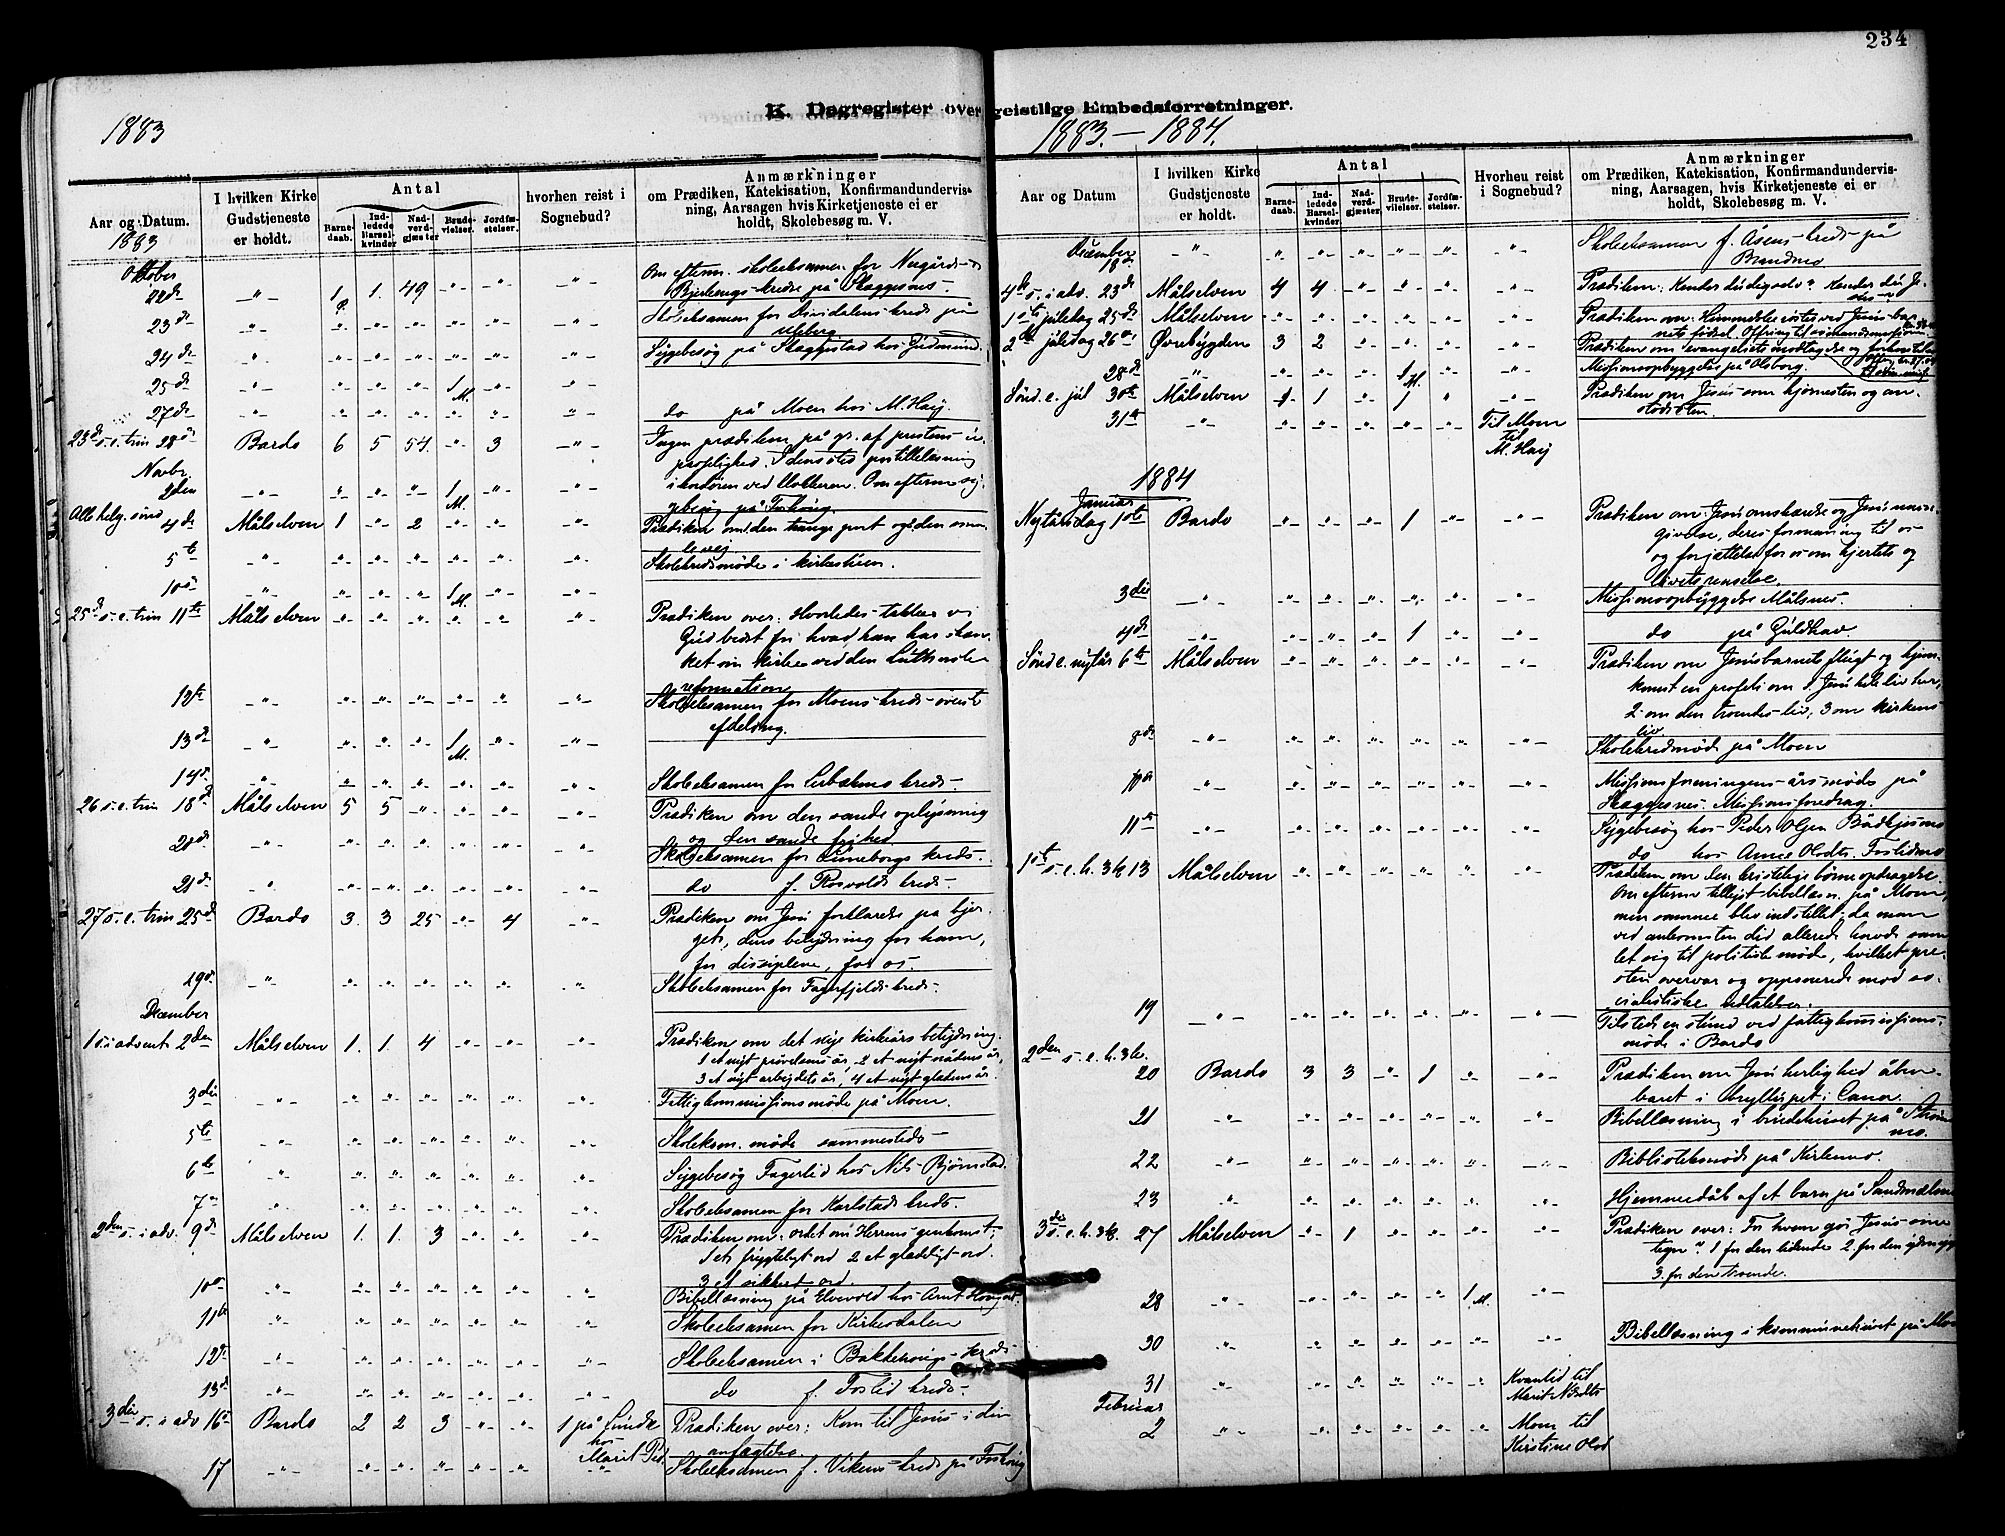 234
K. Dagregister over geistlige Embedsforretninger.
1883
1883. — 1884.
Aar og Datum.
I hvilken Kirke Gudstjeneste er holdt.
Antal
Barnedaab.
Indledede Barselkvinder
Nadverdgjæster
Brudevielser.
Jordfæstelser.
hvorhen reist i Sognebud?
Anmærkninger
om Prædiken, Katekisation, Konfirmandundervisning, Aarsagen hvis Kirketjeneste ei er holdt, Skolebesøg m. V.
1883
Oktober
22de -"- 1 1. 49 -"- -"- -"- Om efterm. skoleeksamen for
Bjerkengs-kreds på Skaggesnes.
23de -"- Skoleeksamen for Dividalens kreds på
24de -"- Sygebesøg på Skaggestad hos Gudmund.
25de -"- 1 M.
27de -"- do på Moen hos M. Haij.
23de s. e. trin 28de Bardo 6 5 54. -"- 3 -"- Ingen prædiken på gr. af prestens
I dens sted postillelæsning
ved klokkeren. Om efterm.
på Foshaug.
Novbr.
2den -"- 1 M.
Alle helg. sønd 4de Målselven 1 -"- 2 -"- -"- -"- Prædiken om den trange port og den smale vej.
5te -"- Skolekredsmøde i kirkestuen.
10de -"- 1 M.
25de s. e. trin 11te Målselven -"- Prædiken over: Hvorledes takker vi
Gud bedst for hvad han har skænket
sin kirke ved den Lutherske
reformation
12te -"- Skoleeksamen for Moens kreds øverste
afdeling.
13de -"- 1 M.
14de -"- Skoleeksamen for kreds
26 s. e. trin 18de Målselven 5 5 -"- -"- -"- -"- Prædiken om den sande oplysning
og den sande frihed
20de -"- Skoleeksamen for kreds.
21de -"- do f. Rosvolds kreds
27 s. e. trin 25de Bardo 3. 3 25 -"- 4 -"- Prædiken om Jesu forklarelse på bjerget,
dens betydning for ham,
for disciplene, for os.
29de -"- Skoleeksamen for Fagerfjelds kreds.
December
1 s. i advent 2den Målselven 1. 1. 4 -"- -"- -"- Prædiken om det nye kirkeårs betydning.
1 et nyt prøvelsens år, 2 et nyt nådens år,
3 et nyt arbejdets år, 4 et nyt glædens år.
3die -"- Fattigkommissionsmøde på Moen.
5te -"- Skolekom. møde sammesteds
6te -"- Sygebesøg Fagerlid hos Nils Bjørnstad.
7de -"- Skoleeksamen for Karlstads kreds.
2den s. i adv. 9de Målselven 1. 1. 3 -"- -"- -"- Prædiken om: ordet om Herrens genkomst,
1 et frygteligt ord 2 et glædeligt ord.
3 et sikkert ord.
10de -"- Bibellæsning på Elvevold hos Arnt
11te -"- Skoleeksamen for Kirkesdalen
12te -"- Skoleeksamen i Bakkehaugs-kreds
13de -"- do f. Foslid kreds
3die s. i adv 16de Bardo 2 2 3 -"- -"- 1 på hos Marit Prædiken over: Kom til Jesus i din
anfægtelse.
17 -"- Skoleeksamen f. Vikens kreds på Foshaug
Aar og Datum
I hvilken Kirke Gudstjeneste er holdt.
Antal
Barnedaab.
Indledede Barselkvinder
Nadverdgjæster
Brudevilelser.
Jordfæstelser.
Hvorheu reist i Sognebud?
Anmærkninger
om Prædiken, Katekisation, Konfirmandundervisning, Aarsagen, hvis Kirketjeneste ei er holdt, Skolebesøg m. V.
December
18de -"- Skoleeksamen f. Åsens kreds på
Brandmo
4de s. i adv. 23de Målselven 4 4 -"- -"- -"- -"- Prædiken: Kender du dig selv? Kender du Jesus
1ste juledag 25de Målselven -"- Prædiken over: Himmelske røster ved Jesu barnets
fødsel. Ofring til
2den juledag 26de Øvrebygden 3 2 -"- -"- -"- -"- Prædiken om evangeliets modtagelse og
28de -"- 1 M. Missionsopbyggelse på Olsborg.
Sønd. e. jul 30te Målselven 1 1 -"- 1 -"- -"- Prædiken om Jesus som hjørnesten og anstødssten.
31te -"- Til Moen
til
M. Haij
1884
Januar
Nytårsdag 1ste Bardo -"- -"- -"- 1 -"- -"- Prædiken om: Jesu omskærelse og Jesu navngivelse,
deres formaning til os
og forjættelse for os om hjertets og
livets renselse.
3die -"- Missionsopbyggelse Målsnes.
4de -"- 1 do på Guldhav.
Sønd e. nytår 6te Målselven -"- Prædiken om Jesusbarnets flugt og hjemkomst
en profeti om 1. Jesu hele liv her,
2 om den troendes liv, 3 om kirkens
liv
8de -"- Skolekredsmøde på Moen
10de -"- Missionsforeningens årsmøde på
Skaggesnes. Missionsforedrag.
11te -"- Sygebesøg hos Peder Olsen
do hos Anne Foslidmo
1ste s. e. h. 3k. 13 Målselven -"- Prædiken om den kristelige børneopdragelse
Om efterm. tillyst bibellæsn. på Moen,
men samme blev indstillet, da man
ved ankomsten did allerede havde samlet
sig til politisk møde, hvilket presten
overvar og opponerede mod socialistiske
udtalelser.
19 -"- Tilsteds en stund ved fattigkommissionsmøde
i Bardo
2den s. e. h. 3k.
20 Bardo 3 3 -"- 1 -"- -"- Prædiken om Jesu herlighed åbenbaret
i bryllupet i Cana.
21 -"- Bibellæsning i bedehuset på
22 -"- Biblioteksmøde på Kirkemo.
23 -"- Hjemmedåb af et barn på
3die s. e. h. 3k. 27 Målselven -"- 1 -"- -"- -"- -"- Prædiken over: For hvem gør Jesus sine
tegn? 1 for den lidende 2 for den
3. for den troende.
28 -"- 1. M.
30 -"- Bibellæsning i kommunehuset på Moen
31 -"- Kvanlid til
Marit
Februar
2 -"- Moen til
Kirstine